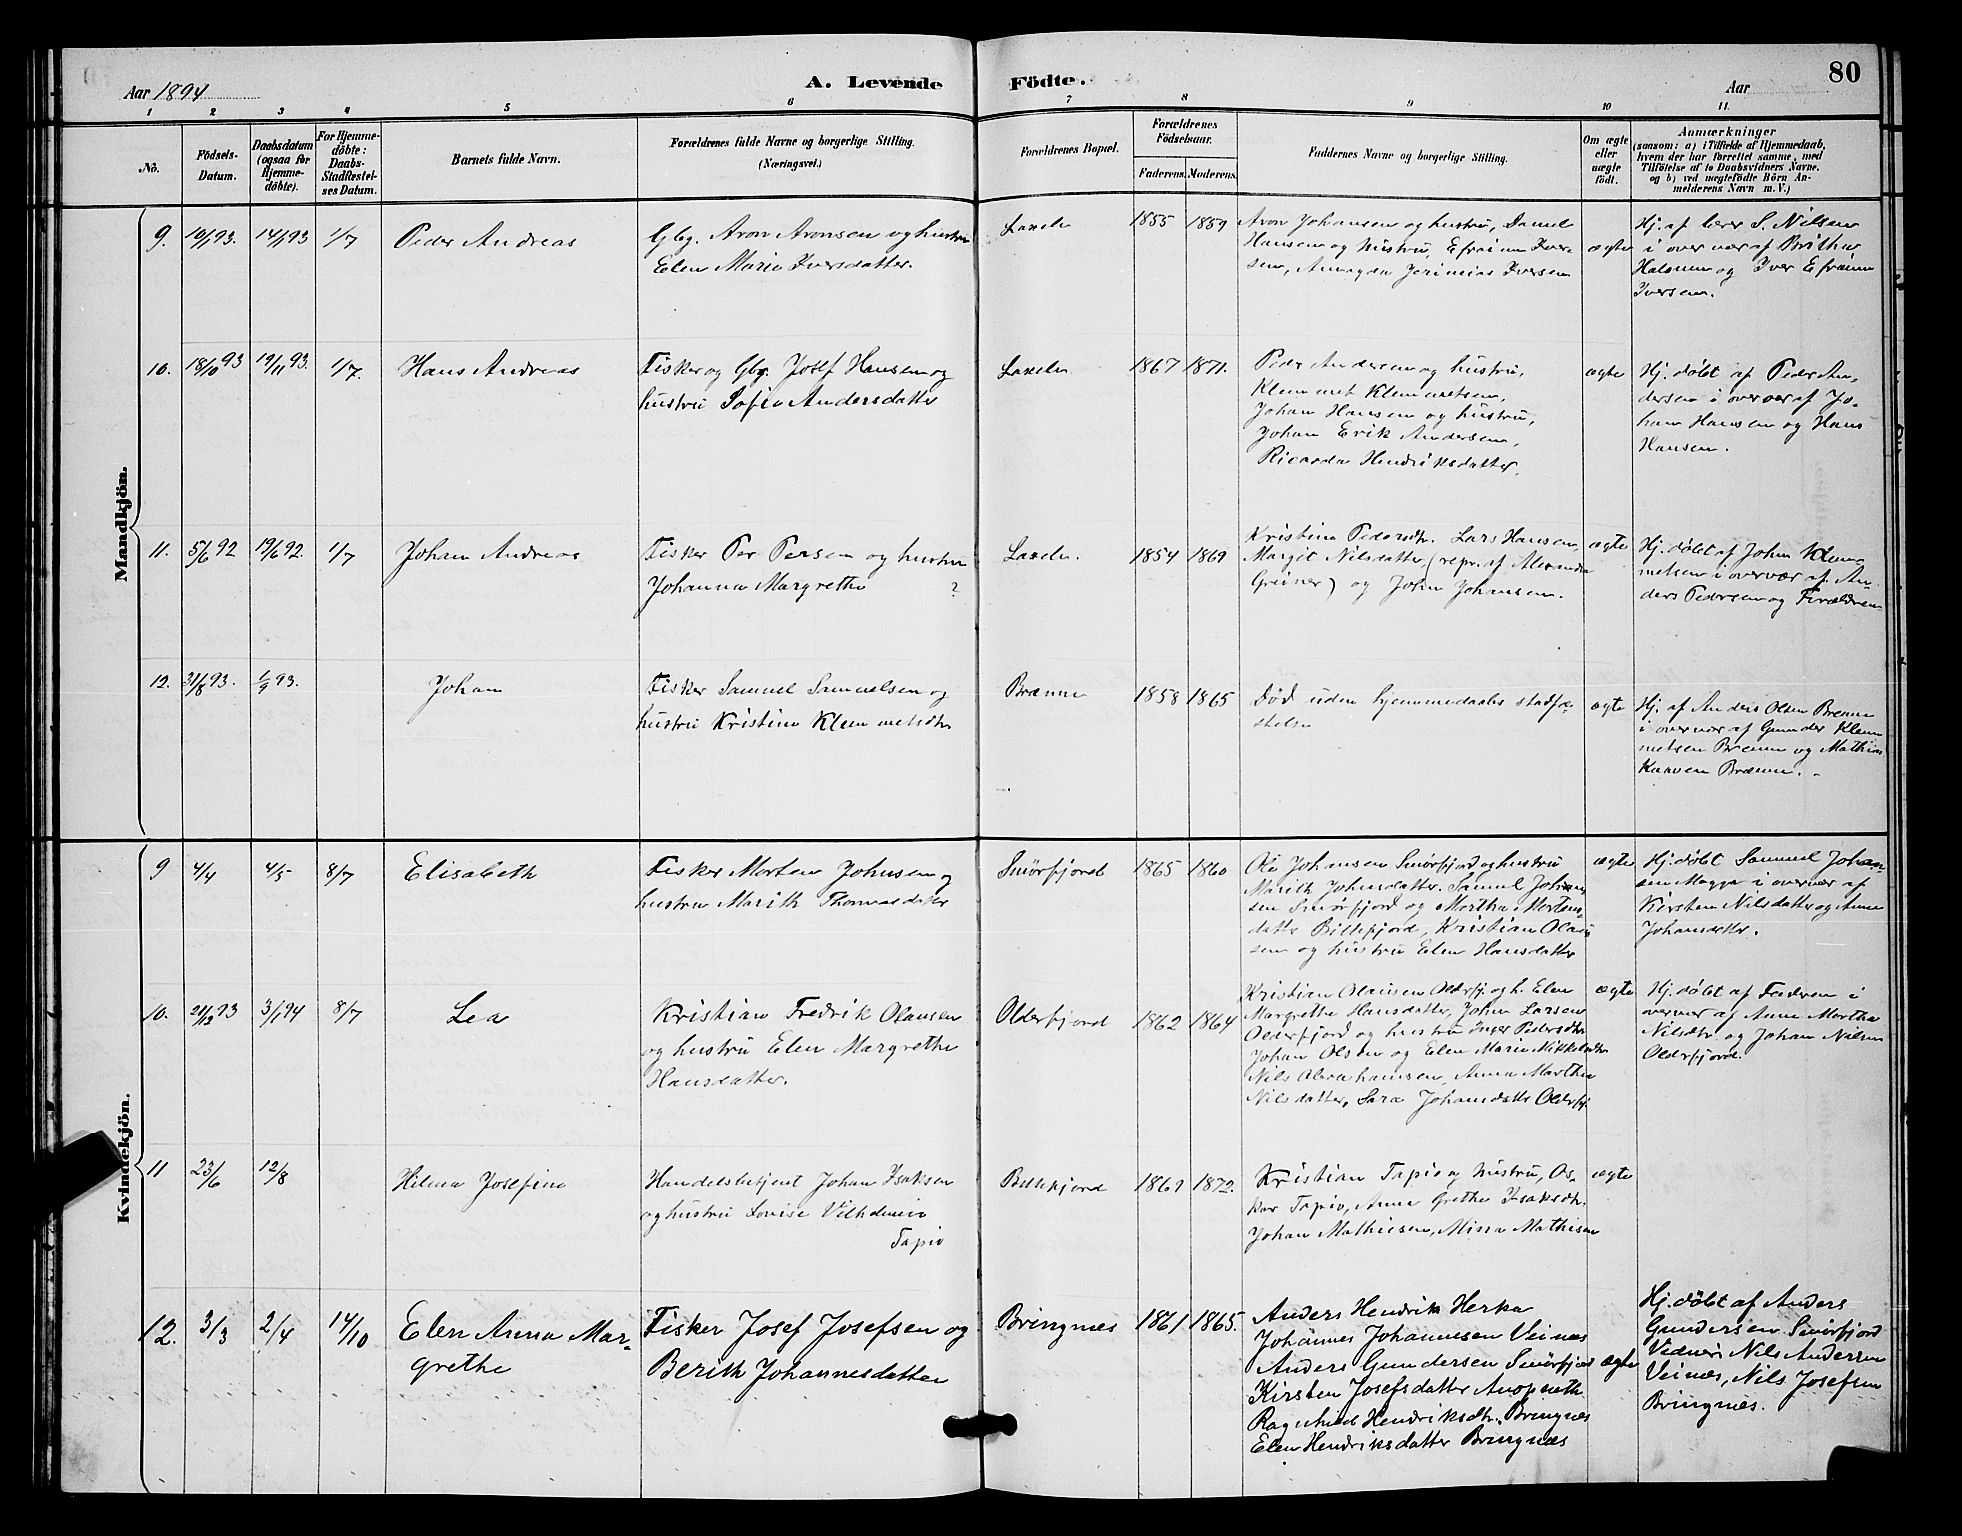 Aar 1894
A. Levende
Födte.
Aar
80
1 2 3 4 5 6 7 8 9 10 11.
No.
Födsels-
Datum.
Daabsdatum
(ogsaa for
Hjemme-
döbte).
For Hjemme-
döbte:
Daabs-
Stadfæstel-
ses Datum.
Barnets fulde Navn.
Forældrenes fulde Navne og borgerlige Stilling.
(Næringsvei.)
Forældrenes Bopæl.
Forældrenes
Födselsaar.
Faderens. Moderens.
Faddernes Navne og borgerlige Stilling.
Om ægte
eller
uægte
födt.
Anmærkninger
(saasom: a) i Tilfælde af Hjemmedaab,
hvem der har forrettet samme, med
Tilföielse af to Daabsvidners Navne,
og b) ved uægtefödte Börn An-
melderens Navn m. V.)
Mandkjön.
9. 10/1 93. 14/1 93 1/7 Peder Andreas
Gbg. Aron Aronsen og hustru
Elen Marie Iversdatter.
Laxelv 1855 1859
Aron Johansen og hustru, Daniel
Hansen og hustru, Efraim Iver-
sen, Jerimias Iversen
ægte
Hj. af lærer S. Nilsen
i overvær af Britha
Halonen og Iver Efraim
Iversen.
10. 18/10 93 19/11 93. 1/7. Hans Andreas
Fisker og Gbg. Josef Hansen og
hustru Sofie Andersdatter
Laxelv 1867 1871.
Peder Andersen og hustru,
Klemmet Klemmetsen,
Johan Hansen og hustru,
Johan Erik Andersen,
Ricarda Hendriksdatter.
ægte
Hj. döbt af Peder An-
dersen i overvær af Jo-
han Hansen og Hans
Hansen.
11. 5/6 92 19/6 92. 1/7 Johan Andreas
Fisker Per Persen og hustru
Johanna Margrethe ?
Laxelv. 1854 1869
Kristine Pedersdtr. Lars Hansen,
Margit Nilsdatter, (repr. af Alexandra
Greiner) og John Johansen.
ægte
Hj. döbt af John Klem-
metsen i overvær af An-
ders Pedersen og Forældren
12. 31/8 93. 1/9 93. Johan
Fisker Samuel Samuelsen og
hustru Kristine Klemmetsdtr
Brænne 1858 1865
Död uden hjemmedaabs stadfæ-
stelse
ægte
Hj. af Anders Olsen Brenne
i overvær af Gunder Klem
metsen Brenne og Mathias
Kaaven Brænne.
Kvindekjön.
9 4/4 4/5 8/7 Elisabeth
Fisker Morten Johnsen og
hustru Marith Thomasdatter
Smörfjord 1865 1860
Ole Johansen Smörfjord og hustru
Marith Johnsdatter. Samuel Johan
sen Smörfjord og Martha Mortens-
datter Billefjord, Kristian Olau
sen og hustru Elen Hansdatter
ægte
Hj. döbt Samuel Johan-
sen Magga i overvær af
Kirsten Nilsdatter og Anne
Johansdatter.
10. 21/12 93 3/1 94 8/7 Lea
Kristian Fredrik Olausen
og hustru Elen Margrethe
Hansdatter.
Olderfjord 1862 1864
Kristian Olausen Olderfj. og h. Elen
Margrethe Hansdatter, John Larsen
Olderfjord og hustru Inger Pedersdtr
Johan Olsen og Elen Marie Mikkelsdtr
Nils Abrahamsen, Anna Martha
Nilsdatter, Sara Johansdatter Olderfj.
ægte
Hj. döbt af Faderen i
overvær af Anne Martha
Nilsdtr. og Johan Nilsen
Olderfjord.
11 23/6 12/8 Hilma Josefine
Handelsbetjent Johan Isaksen
og hustru Lovise Vilhelmine
Tapio
Billefjord 1869 1872.
Kristian Tapio og hustru, Os-
kar Tapio, Anne Grethe Isaksdtr.
Johan Mathiesen, Minna Mathisen
ægte
12. 3/3 2/4 14/10 Elen Anna Mar-
grethe
Fisker Josef Josefsen og
Berith Johannesdatter
Bringnæs 1861 1865.
Anders Hendrik Herka
Johannes Johannesen Veinæs
Anders Gundersen Smörfjord
Kirsten Josefsdatter
Ragnhild Hendriksdtr. Bringnæs
Elen Hendriksdatter Bringnæs
ægte
Hj. döbt af Anders
Gundersen Smörfjord
Vidner: Nils Andersen
Veinæs, Nils Josefsen
Bringnæs.